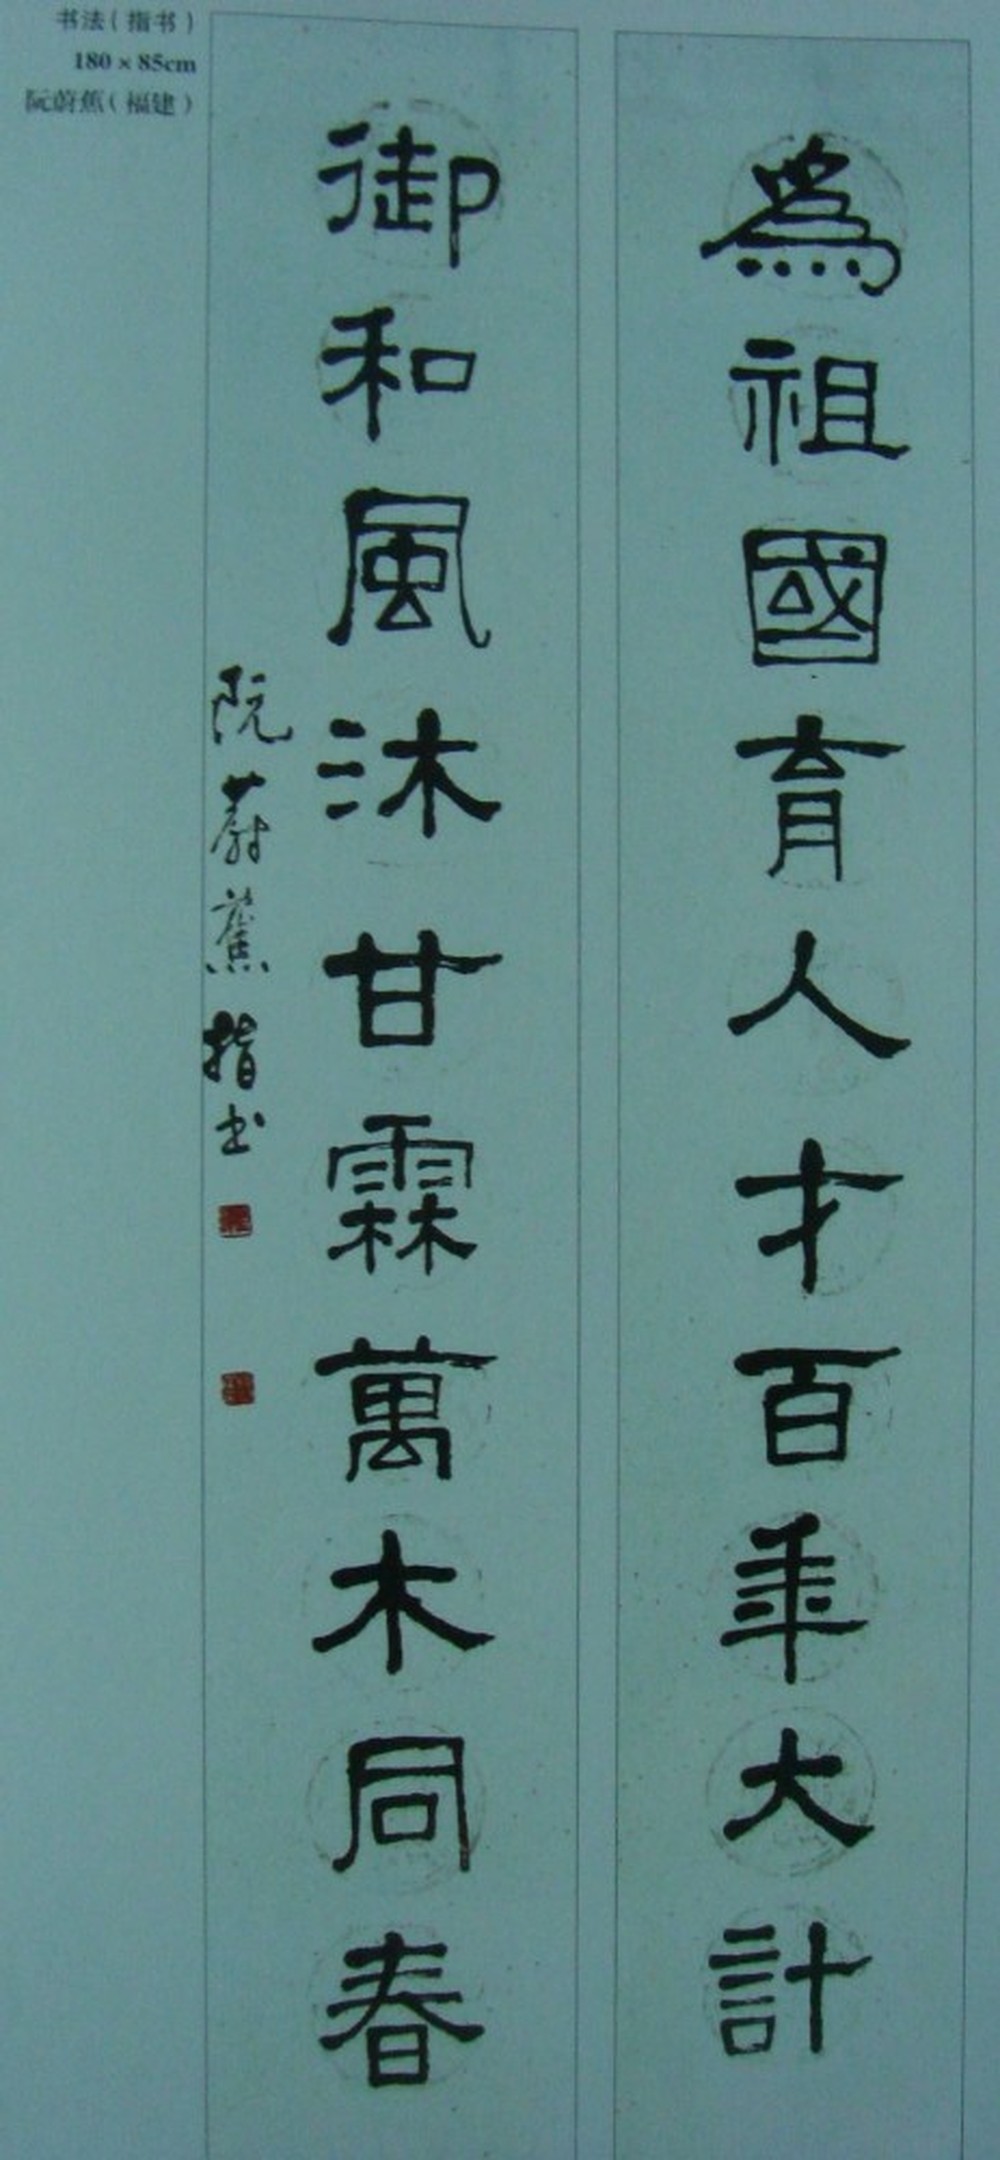 书法（指书）
180×85cm
阮蔚蕉（福建）
為祖國育人才百年大計
御和風沐甘霖萬木同春
阮蔚蕉指书